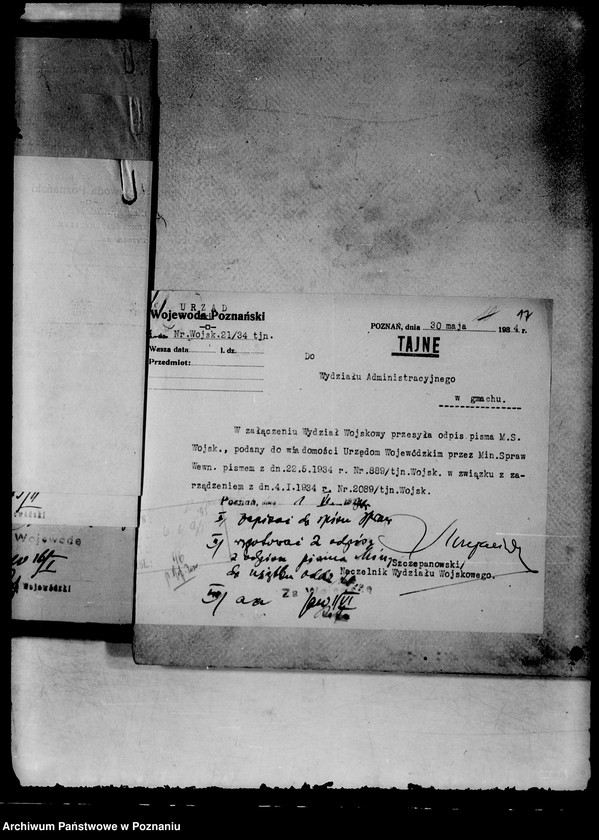 URZĄD
Wojewoda Poznański
Nr.Wojsk.21/34 tjn.
Wasza data l. dz.
Przedmiot:
17
POZNAŃ, dnia 30 maja 1934 r.
TAJNE
Do
Wydziału Administracyjnego
w gmachu.
W załączeniu Wydział Wojskowy przesyła odpis pisma M.S.
Wojsk., podany do wiadomości Urzędom Wojewódzkim przez Min.Spraw
Wewn. pismem z dn.22.5.1934 r. Nr.889/tjn.Wojsk. w związku z za-
rządzeniem z dn.4.I.1934 r. Nr.2089/tjn.Wojsk.
Poznań, dnia 1 VI
I/ wpisać do spisu spraw
II/ 2 odpisy
z odpisu pisma Min.
do użytku oddz.
III/ a a
/Szczepanowski/
Naczelnik Wydziału Wojskowego.
Za Wojewodę
Wojewodę
16/I
Wojewódzki
Archiwum Państwowe w Poznaniu